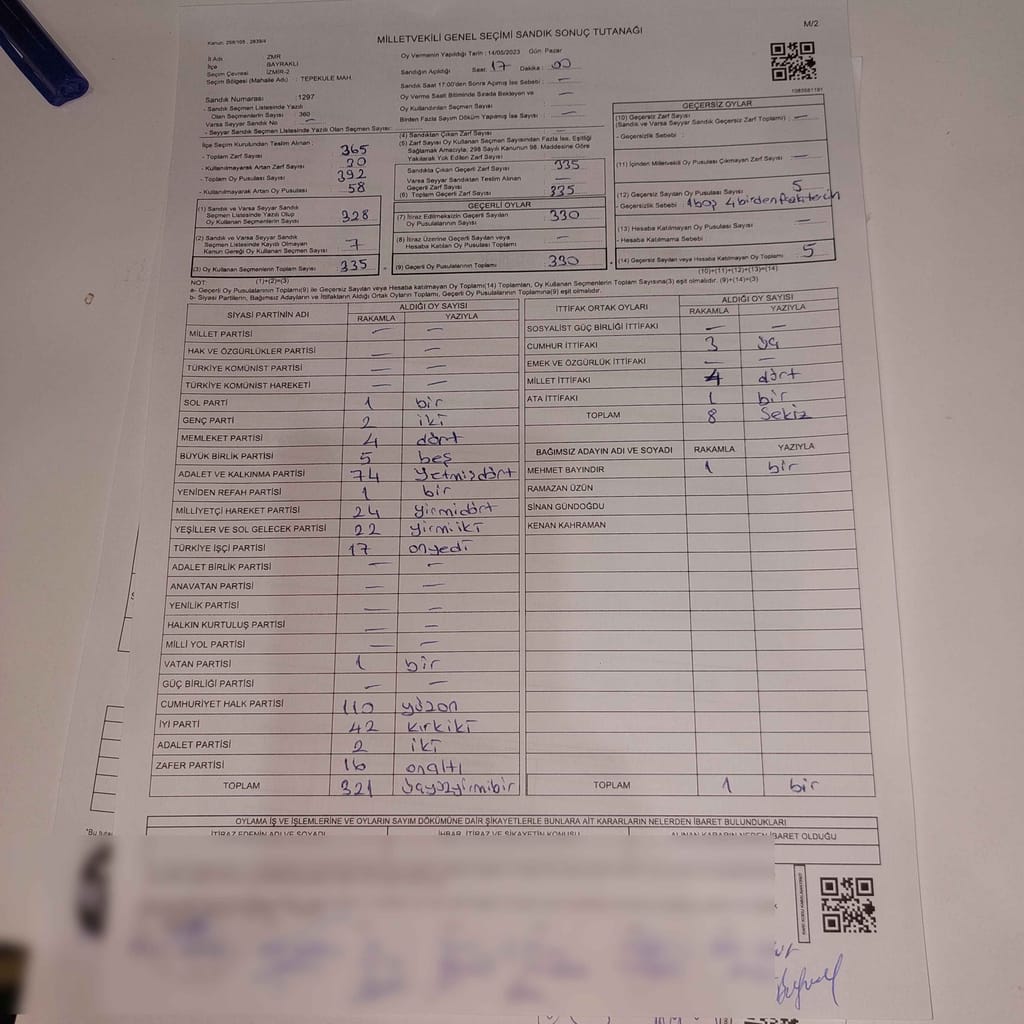 MİLLETVEKİLİ GENEL SEÇİMİ SANDIK SONUÇ TUTANAĞI
M/2
Kanun: 298/105 , 2839/4
İl Adı ZMR
İlçe BAYRAKLI
Seçim Çevresi İZMİR-2
Seçim Bölgesi (Mahalle Adı) : TEPEKULE MAH.
Sandık Numarası : 1297
- Sandık Seçmen Listesinde Yazılı
Olan Seçmenlerin Sayısı 360
Varsa Seyyar Sandık No —
- Seyyar Sandık Seçmen Listesinde Yazılı Olan Seçmen Sayısı:
İlçe Seçim Kurulundan Teslim Alınan :
- Toplam Zarf Sayısı 365
- Kullanılmayarak Artan Zarf Sayısı 30
- Toplam Oy Pusulası Sayısı 392
- Kullanılmayarak Artan Oy Pusulası 58
(1) Sandık ve Varsa Seyyar Sandık
Seçmen Listesinde Yazılı Olup
Oy Kullanan Seçmenlerin Sayısı 328
(2) Sandık ve Varsa Seyyar Sandık
Seçmen Listesinde Kayıtlı Olmayan
Kanun Gereği Oy Kullanan Seçmen Sayısı 7
(3) Oy Kullanan Seçmenlerin Toplam Sayısı 335
(1)+(2)=(3)
Oy Vermenin Yapıldığı Tarih : 14/05/2023 Gün: Pazar
Sandığın Açıldığı Saat: 17 Dakika : 00
Sandık Saat 17:00'den Sonra Açılmış İse Sebebi : —
Oy Verme Saati Bitiminde Sırada Bekleyen ve
Oy Kullandırılan Seçmen Sayısı : —
Birden Fazla Sayım Döküm Yapılmış İse Sayısı : —
(4) Sandıktan Çıkan Zarf Sayısı —
(5) Zarf Sayısı Oy Kullanan Seçmen Sayısından Fazla İse, Eşitliği
Sağlamak Amacıyla; 298 Sayılı Kanunun 98. Maddesine Göre
Yakılarak Yok Edilen Zarf Sayısı
Sandıkta Çıkan Geçerli Zarf Sayısı 335
Varsa Seyyar Sandıktan Teslim Alınan
Geçerli Zarf Sayısı —
(6) Toplam Geçerli Zarf Sayısı 335
GEÇERLİ OYLAR
(7) İtiraz Edilmeksizin Geçerli Sayılan
Oy Pusulası Sayısı 330
(8) İtiraz Üzerine Geçerli Sayılan veya
Hesaba Katılan Oy Pusulası Toplamı —
(9) Geçerli Oy Pusulalarının Toplamı 330
1083581191
GEÇERSİZ OYLAR
(10) Geçersiz Zarf Sayısı
(Sandık ve Varsa Seyyar Sandık Geçersiz Zarf Toplamı) : —
- Geçersizlik Sebebi :
(11) İçinden Milletvekili Oy Pusulası Çıkmayan Zarf Sayısı —
(12) Geçersiz Sayılan Oy Pusulası Sayısı 5
- Geçersizlik Sebebi : 1 boş 4 birden fazla tercih
(13) Hesaba Katılmayan Oy Pusulası Sayısı —
- Hesaba Katılmama Sebebi
(14) Geçersiz Sayılan veya Hesaba Katılmayan Oy Toplamı 5
(10)+(11)+(12)+(13)=(14)
NOT:
a- Geçerli Oy Pusulalarının Toplamı(9) ile Geçersiz Sayılan veya Hesaba Katılmayan Oy Toplamı(14) Toplamları, Oy Kullanan Seçmenlerin Toplam Sayısına(3) eşit olmalıdır. (9)+(14)=(3)
b- Siyasi Partilerin, Bağımsız Adayların ve İttifakların Aldığı Ortak Oyların Toplamı, Geçerli Oy Pusulalarının Toplamına(9) eşit olmalıdır.
SİYASİ PARTİNİN ADI ALDIĞI OY SAYISI
RAKAMLA YAZIYLA
MİLLET PARTİSİ — —
HAK VE ÖZGÜRLÜKLER PARTİSİ — —
TÜRKİYE KOMÜNİST PARTİSİ — —
TÜRKİYE KOMÜNİST HAREKETİ — —
SOL PARTİ 1 bir
GENÇ PARTİ 2 iki
MEMLEKET PARTİSİ 4 dört
BÜYÜK BİRLİK PARTİSİ 5 beş
ADALET VE KALKINMA PARTİSİ 74 yetmişdört
YENİDEN REFAH PARTİSİ 1 bir
MİLLİYETÇİ HAREKET PARTİSİ 24 yirmidört
YEŞİLLER VE SOL GELECEK PARTİSİ 22 yirmiiki
TÜRKİYE İŞÇİ PARTİSİ 17 onyedi
ADALET BİRLİK PARTİSİ — —
ANAVATAN PARTİSİ — —
YENİLİK PARTİSİ — —
HALKIN KURTULUŞ PARTİSİ — —
MİLLİ YOL PARTİSİ — —
VATAN PARTİSİ 1 bir
GÜÇ BİRLİĞİ PARTİSİ — —
CUMHURİYET HALK PARTİSİ 110 yüzon
İYİ PARTİ 42 kırkiki
ADALET PARTİSİ 2 iki
ZAFER PARTİSİ 16 onaltı
TOPLAM 321 üçyüzyirmibir
İTTİFAK ORTAK OYLARI ALDIĞI OY SAYISI
RAKAMLA YAZIYLA
SOSYALİST GÜÇ BİRLİĞİ İTTİFAKI — —
CUMHUR İTTİFAKI 3 üç
EMEK VE ÖZGÜRLÜK İTTİFAKI — —
MİLLET İTTİFAKI 4 dört
ATA İTTİFAKI 1 bir
TOPLAM 8 Sekiz
BAĞIMSIZ ADAYIN ADI VE SOYADI RAKAMLA YAZIYLA
MEHMET BAYINDIR 1 bir
RAMAZAN ÜZÜN
SİNAN GÜNDOĞDU
KENAN KAHRAMAN
TOPLAM 1 bir
OYLAMA İŞ VE İŞLEMLERİNE VE OYLARIN SAYIM DÖKÜMÜNE DAİR ŞİKAYETLERLE BUNLARA AİT KARARLARIN NELERDEN İBARET BULUNDUKLARI
İTİRAZ EDENİN ADI VE SOYADI İHBAR, İTİRAZ VE ŞİKAYETİN KONUSU ALINAN KARARIN NEDEN İBARET OLDUĞU
*Bu tuta